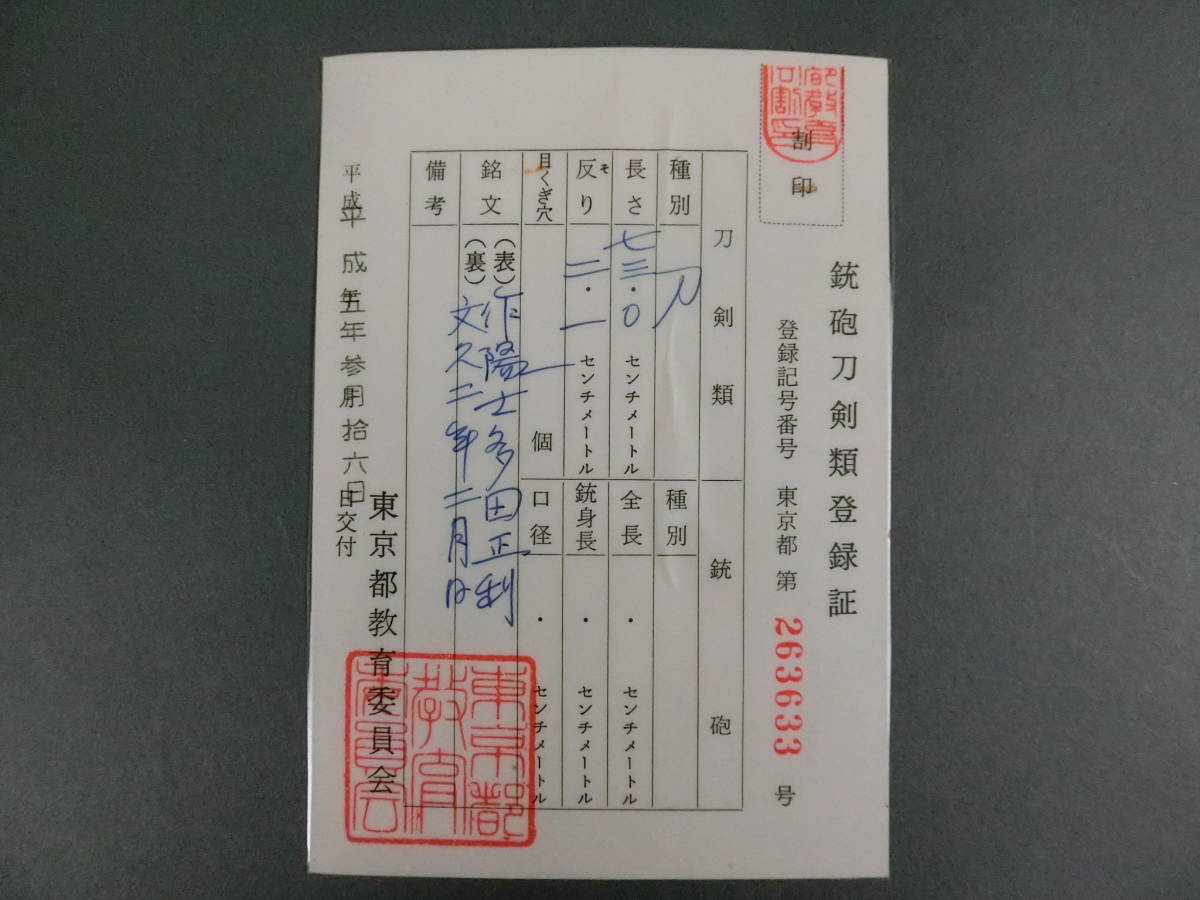 銃砲刀剣類登録証
登録記号番号 東京都 第 263633 号
割印
刀剣類
銃砲
種別 刀
種別
長さ 七三・〇 センチメートル
全長 ・ センチメートル
反り 二・一 センチメートル
そ
銃身長 ・ センチメートル
目くぎ穴 個
口径 ・ センチメートル
銘文 (表) 作陽士多田正利
(裏) 文久二年二月日
備考
東京都教育委員会
平成五年参月拾六日
平成 年 月 日交付
東京都
教育
委員会